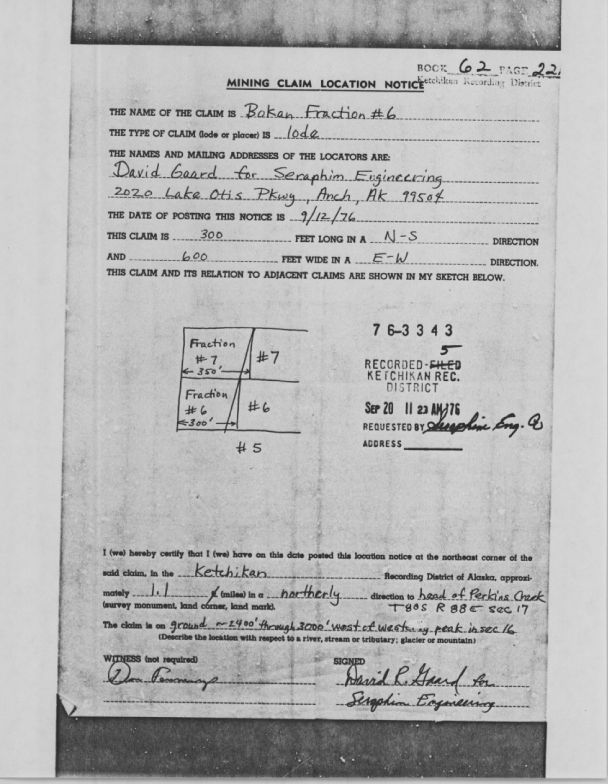 BOOK 62 PAGE 22
Ketchikan Recording District
MINING CLAIM LOCATION NOTICE
THE NAME OF THE CLAIM IS Bokan Fraction #6
THE TYPE OF CLAIM (lode or placer) IS lode
THE NAMES AND MAILING ADDRESSES OF THE LOCATORS ARE:
David Gaard for Seraphim Engineering
2020 Lake Otis Pkwy, Anch, Ak 99504
THE DATE OF POSTING THIS NOTICE IS 9/12/76
THIS CLAIM IS 300 FEET LONG IN A N-S DIRECTION
AND 600 FEET WIDE IN A E-W DIRECTION.
THIS CLAIM AND ITS RELATION TO ADJACENT CLAIMS ARE SHOWN IN MY SKETCH BELOW.
Fraction
#7
350'
#7
Fraction
#6
300'
#6
#5
76-3343
5
RECORDED-FILED
KETCHIKAN REC.
DISTRICT
SEP 20 11 23 AM '76
REQUESTED BY Seraphim Eng. Co
ADDRESS
I (we) hereby certify that I (we) have on this date posted this location notice at the northeast corner of the
said claim, in the Ketchikan Recording District of Alaska, approxi-
mately 1.1 (miles) in a northerly direction to head of Perkins Creek
(survey monument, land corner, land mark). T80S R88E sec 17
The claim is on ground ~2400' through 3000' west of peak in sec 16
(Describe the location with respect to a river, stream or tributary; glacier or mountain)
WITNESS (not required)
SIGNED
David R. Gaard for
Seraphim Engineering